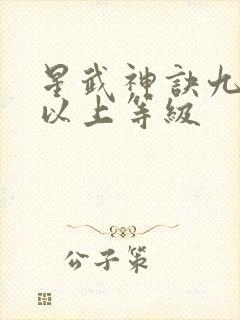 星武神訣九
以上等級
公子策